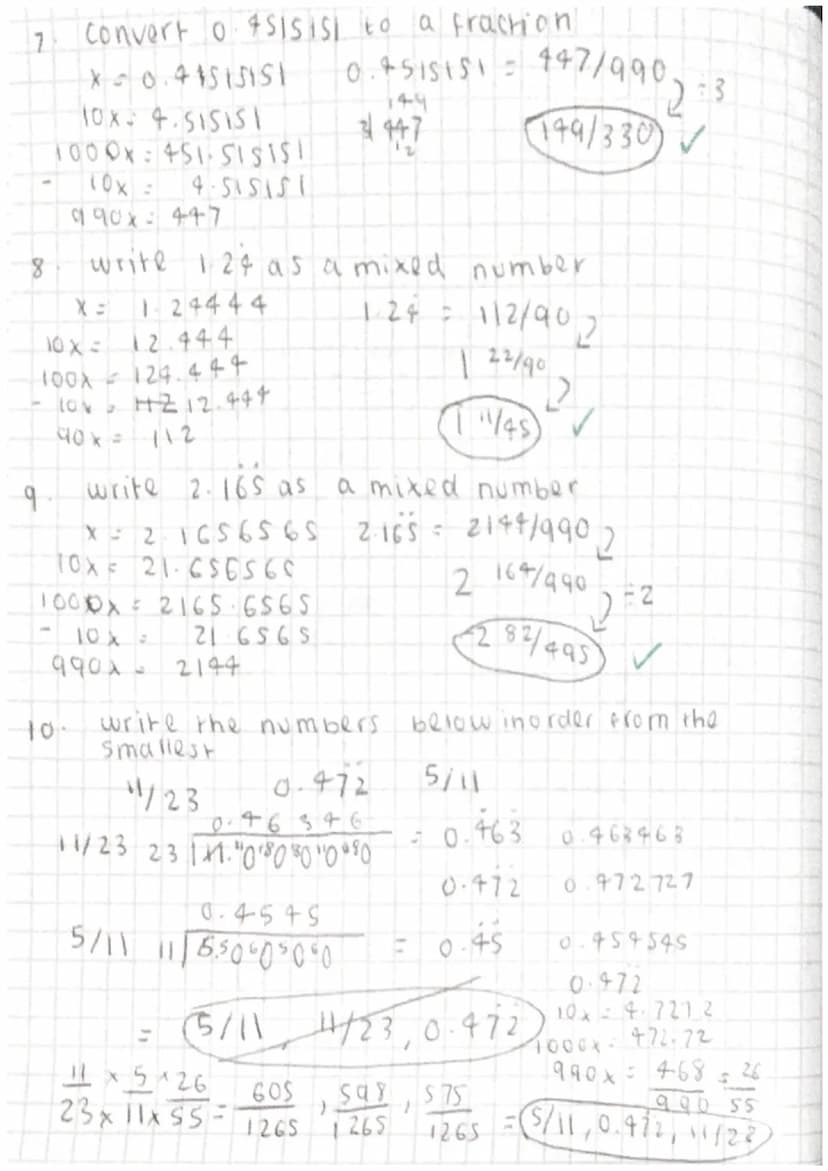 7. convert 0.4515151 to a fraction
x = 0.4515151 0.4515151 = 447/990
÷3
10x = 4.515151 149
3 447 149/330 ✓
1000x = 451.515151
- 10x = 4.515151
990x = 447
8. write 1.24̇ as a mixed number
x = 1.24444 1.24̇ = 112/90
10x = 12.444
100x = 124.444 1 22/90
- 10x = 12.444
90x = 112 1 11/45 ✓
9. write 2.16̇5̇ as a mixed number
x = 2.1656565 2.16̇5̇ = 2144/990
10x = 21.656565
1000x = 2165.6565 2 164/990 ÷2
- 10x = 21.6565 2 82/495 ✓
990x = 2144
10. write the numbers below in order from the
smallest
11/23 0.47̇2̇ 5/11
0.46 346
11/23 23 = 0.4̇63̇ 0.463463
0.47̇2̇ 0.472727
0.4545
5/11 11 = 0.4̇5̇ 0.454545
0.47̇2̇
10x = 4.7272
= 5/11, 11/23, 0.47̇2̇ 1000x = 472.72
990x = 468/990 = 26/55
11/23 x 5/11 x 26/55 = 605/1265, 598/1265, 575/1265 = 5/11, 0.47̇2̇, 11/23